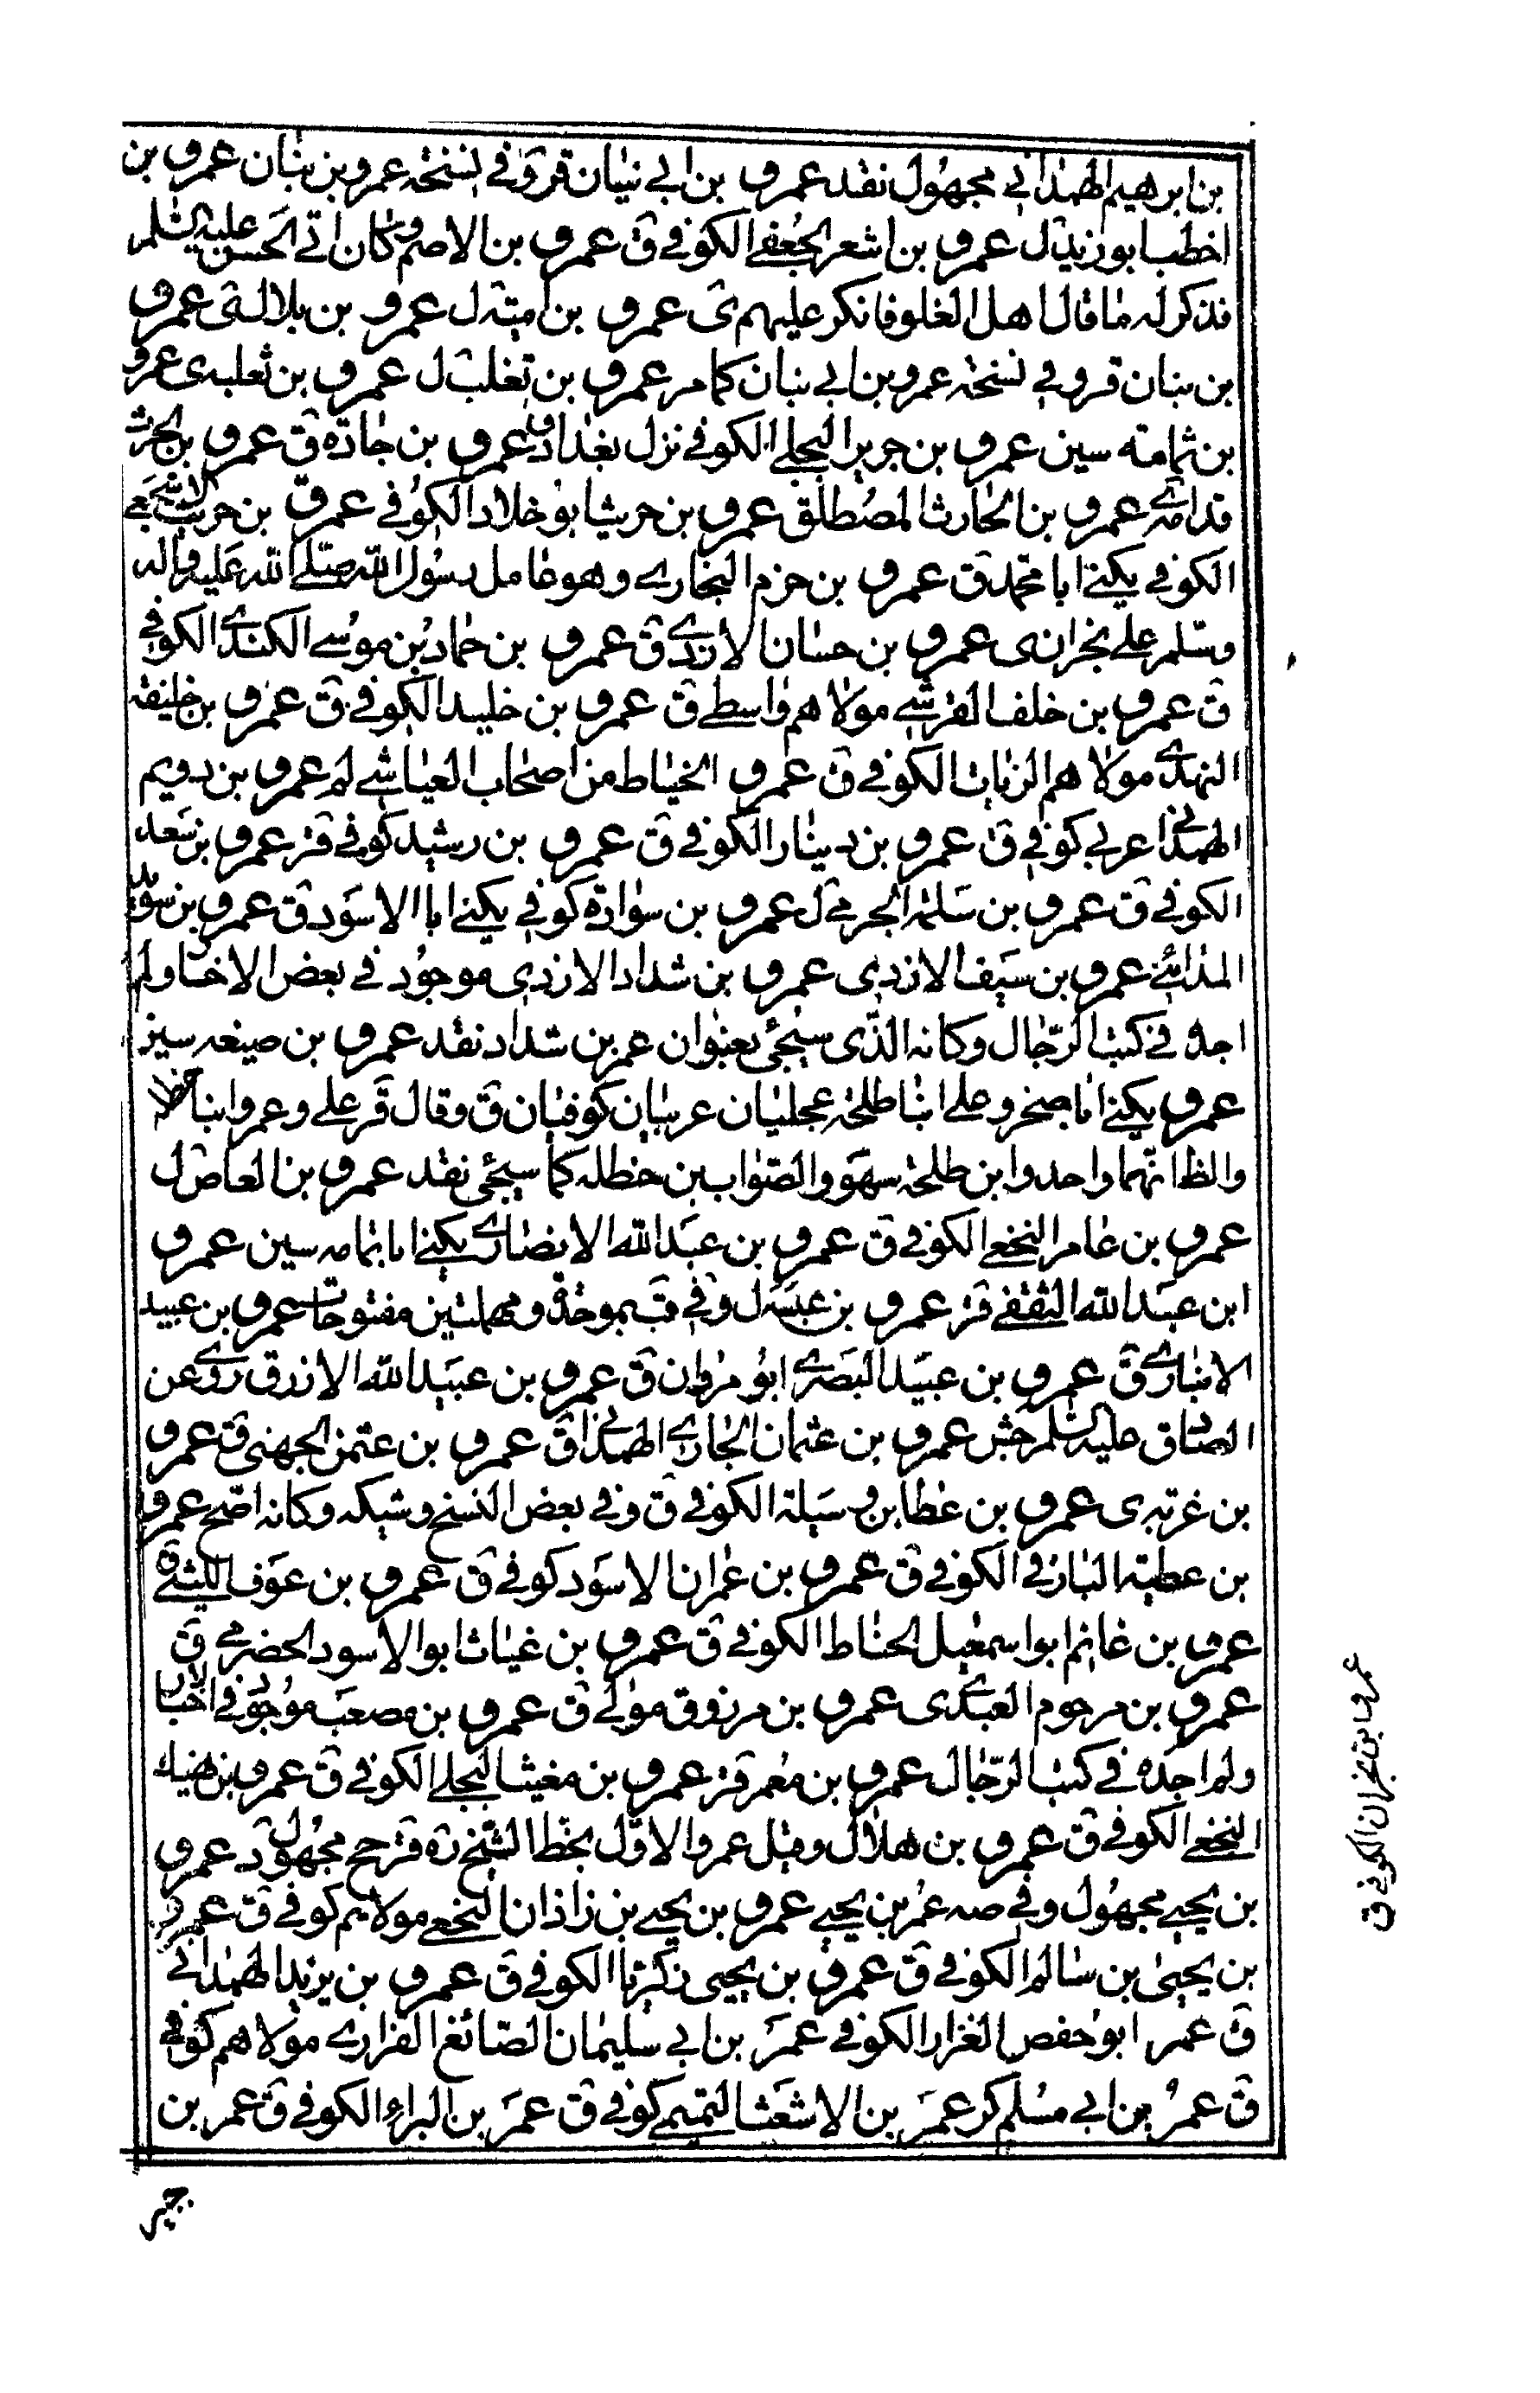 بن ابرهيم الهمداني مجهول نقد عمرو بن ابي نيان قر وفي نسخة عمرو بن بنان عمرو بن
اخطب ابو زيد ل عمرو بن اشعر الجعفي الكوفي ق عمرو بن الاصم وكان اتي الحسن عليه السلم
فذكر له ما قال اهل الغلو فانكر عليهم ى عمرو بن امية ل عمرو بن بلال لى عمرو
بن بنان قر وفي نسخة عمرو بن ابي بنان كما مر عمرو بن تغلب ل عمرو بن ثعلبه ى عمرو
بن ثمامة سين عمرو بن جرير البجلي الكوفي نزل بغداد ق عمرو بن جادة ق عمرو بن الحرث
قدامه ى عمرو بن الحارث المصطلق عمرو بن حريث ابو خلاد الكوفي عمرو بن حريث الاشجعي
الكوفي يكنى ابا محمد ق عمرو بن حزم النجاري وهو عامل رسول الله صلى الله عليه واله
وسلم على نجران ى عمرو بن حسان الازدي ق عمرو بن حماد بن موسى الكندي الكوفي
ق عمرو بن خلف القرشي مولاهم واسطي ق عمرو بن خليد الكوفي ق عمرو بن خليفة
النهدي مولاهم الزيات الكوفي ق عمرو الخياط من اصحاب العياشي لم عمرو بن رويم
الهمداني عربي كوفي ق عمرو بن دينار الكوفي ق عمرو بن رشيد كوفي قر عمرو بن سعد
الكوفي ق عمرو بن سلمة الجرمي ل عمرو بن سوادة كوفي يكنى ابا الاسود ق عمرو بن سويد
المدائني عمرو بن سيف الازدي ى عمرو بن شداد الازدي موجود في بعض الاخبار ولم
اجده في كتب الرجال وكانه الذى سيجئ بعنوان عمر بن شداد نقد عمرو بن صيغه سين
عمرو يكنى ابا صخر وعلي ابنا طلحة عجليان عربيان كوفيان ق وقال قر علي وعمرو ابنا حنظله
والظ انهما واحد وابن طلحة سهو والصواب بن حنظله كما سيجئ نقد عمرو بن العاص ل
عمرو بن عامر النخعي الكوفي ق عمرو بن عبد الله الانصاري يكنى ابا ثمامه سين عمرو
ابن عبد الله الثقفي قر عمرو بن عبسه ل وفي قب بموحدة ومهملتين مفتوحات عمرو بن عبيد
الانباري ق عمرو بن عبيد البصري ابو مروان ق عمرو بن عبيد الله الازرق روى عن
الصادق عليه السلم جش عمرو بن عثمان الجابري الهمداني ق عمرو بن عثمن الجهني ق عمرو
بن غزيه ى عمرو بن عطا بن وسيلة الكوفي ق وفي بعض النسخ وشيكه وكانه اصح عمرو
بن عطية البارقي الكوفي ق عمرو بن عمران الاسود كوفي ق عمرو بن عوف الليثي ق
عمرو بن غانم ابو اسمعيل الحناط الكوفي ق عمرو بن غياث ابو الاسود الحضرمي ق
عمرو بن مرحوم العبدى ى عمرو بن مرزوق مولى ق عمرو بن مصعب موجود في الاخبار
ولم اجده في كتب الرجال عمرو بن معمر قر عمرو بن مغيث البجلي الكوفي ق عمرو بن
النخعي الكوفي ق عمرو بن هلال وقيل عمر والاول بخط الشيخ ره قر جح مجهول د عمرو
بن يحيى مجهول وفي صه عمر بن يحيى عمرو بن يحيى بن زاذان النخعي مولاهم كوفي ق عمرو
بن يحيى بن سالم الكوفي ق عمرو بن يحيى زكريا الكوفي ق عمرو بن يزيد الهمداني
ق عمر ابو حفص الغزار الكوفي عمر بن ابي سليمان الصائغ الفزاري مولاهم كوفي
ق عمر بن ابي مسلم كر عمر بن الاشعث التميمي كوفي ق عمر بن البراء الكوفي ق عمر بن
عمرو بن نجران الكوفي ق
جبر